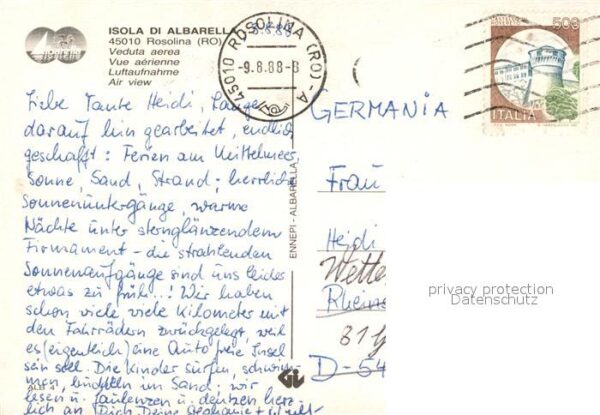 ISOLA DI ALBARELLA
45010 Rosolina (RO)
Veduta aerea
Vue aérienne
Luftaufnahme
Air view
8.8.88
45010 ROSOLINA (RO) - A
-9.8.88-8
500
ITALIA
Liebe Tante Heidi, Lange
darauf hin gearbeitet, endlich
geschafft: Ferien am Mittelmeer,
Sonne, Sand, Strand; herrliche
Sonnenuntergänge, warme
Nächte unter sternglänzendem
Firmament - die strahlenden
Sonnenaufgänge sind uns leider
etwas zu früh..! Wir haben
schon viele viele Kilometer mit
den Fahrrädern zurückgelegt, weil
es (eigentlich) eine Auto freie Insel
sein soll. Die Kinder surfen, schwim-
men, buddeln im Sand; wir
lesen u. faulenzen u. denken herz-
lich an Dich. Deine Stephanie +
ENNEPI - ALBARELLA
GERMANIA
Frau
Heidi
Wette
Rheine
D-54
privacy protection
Datenschutz